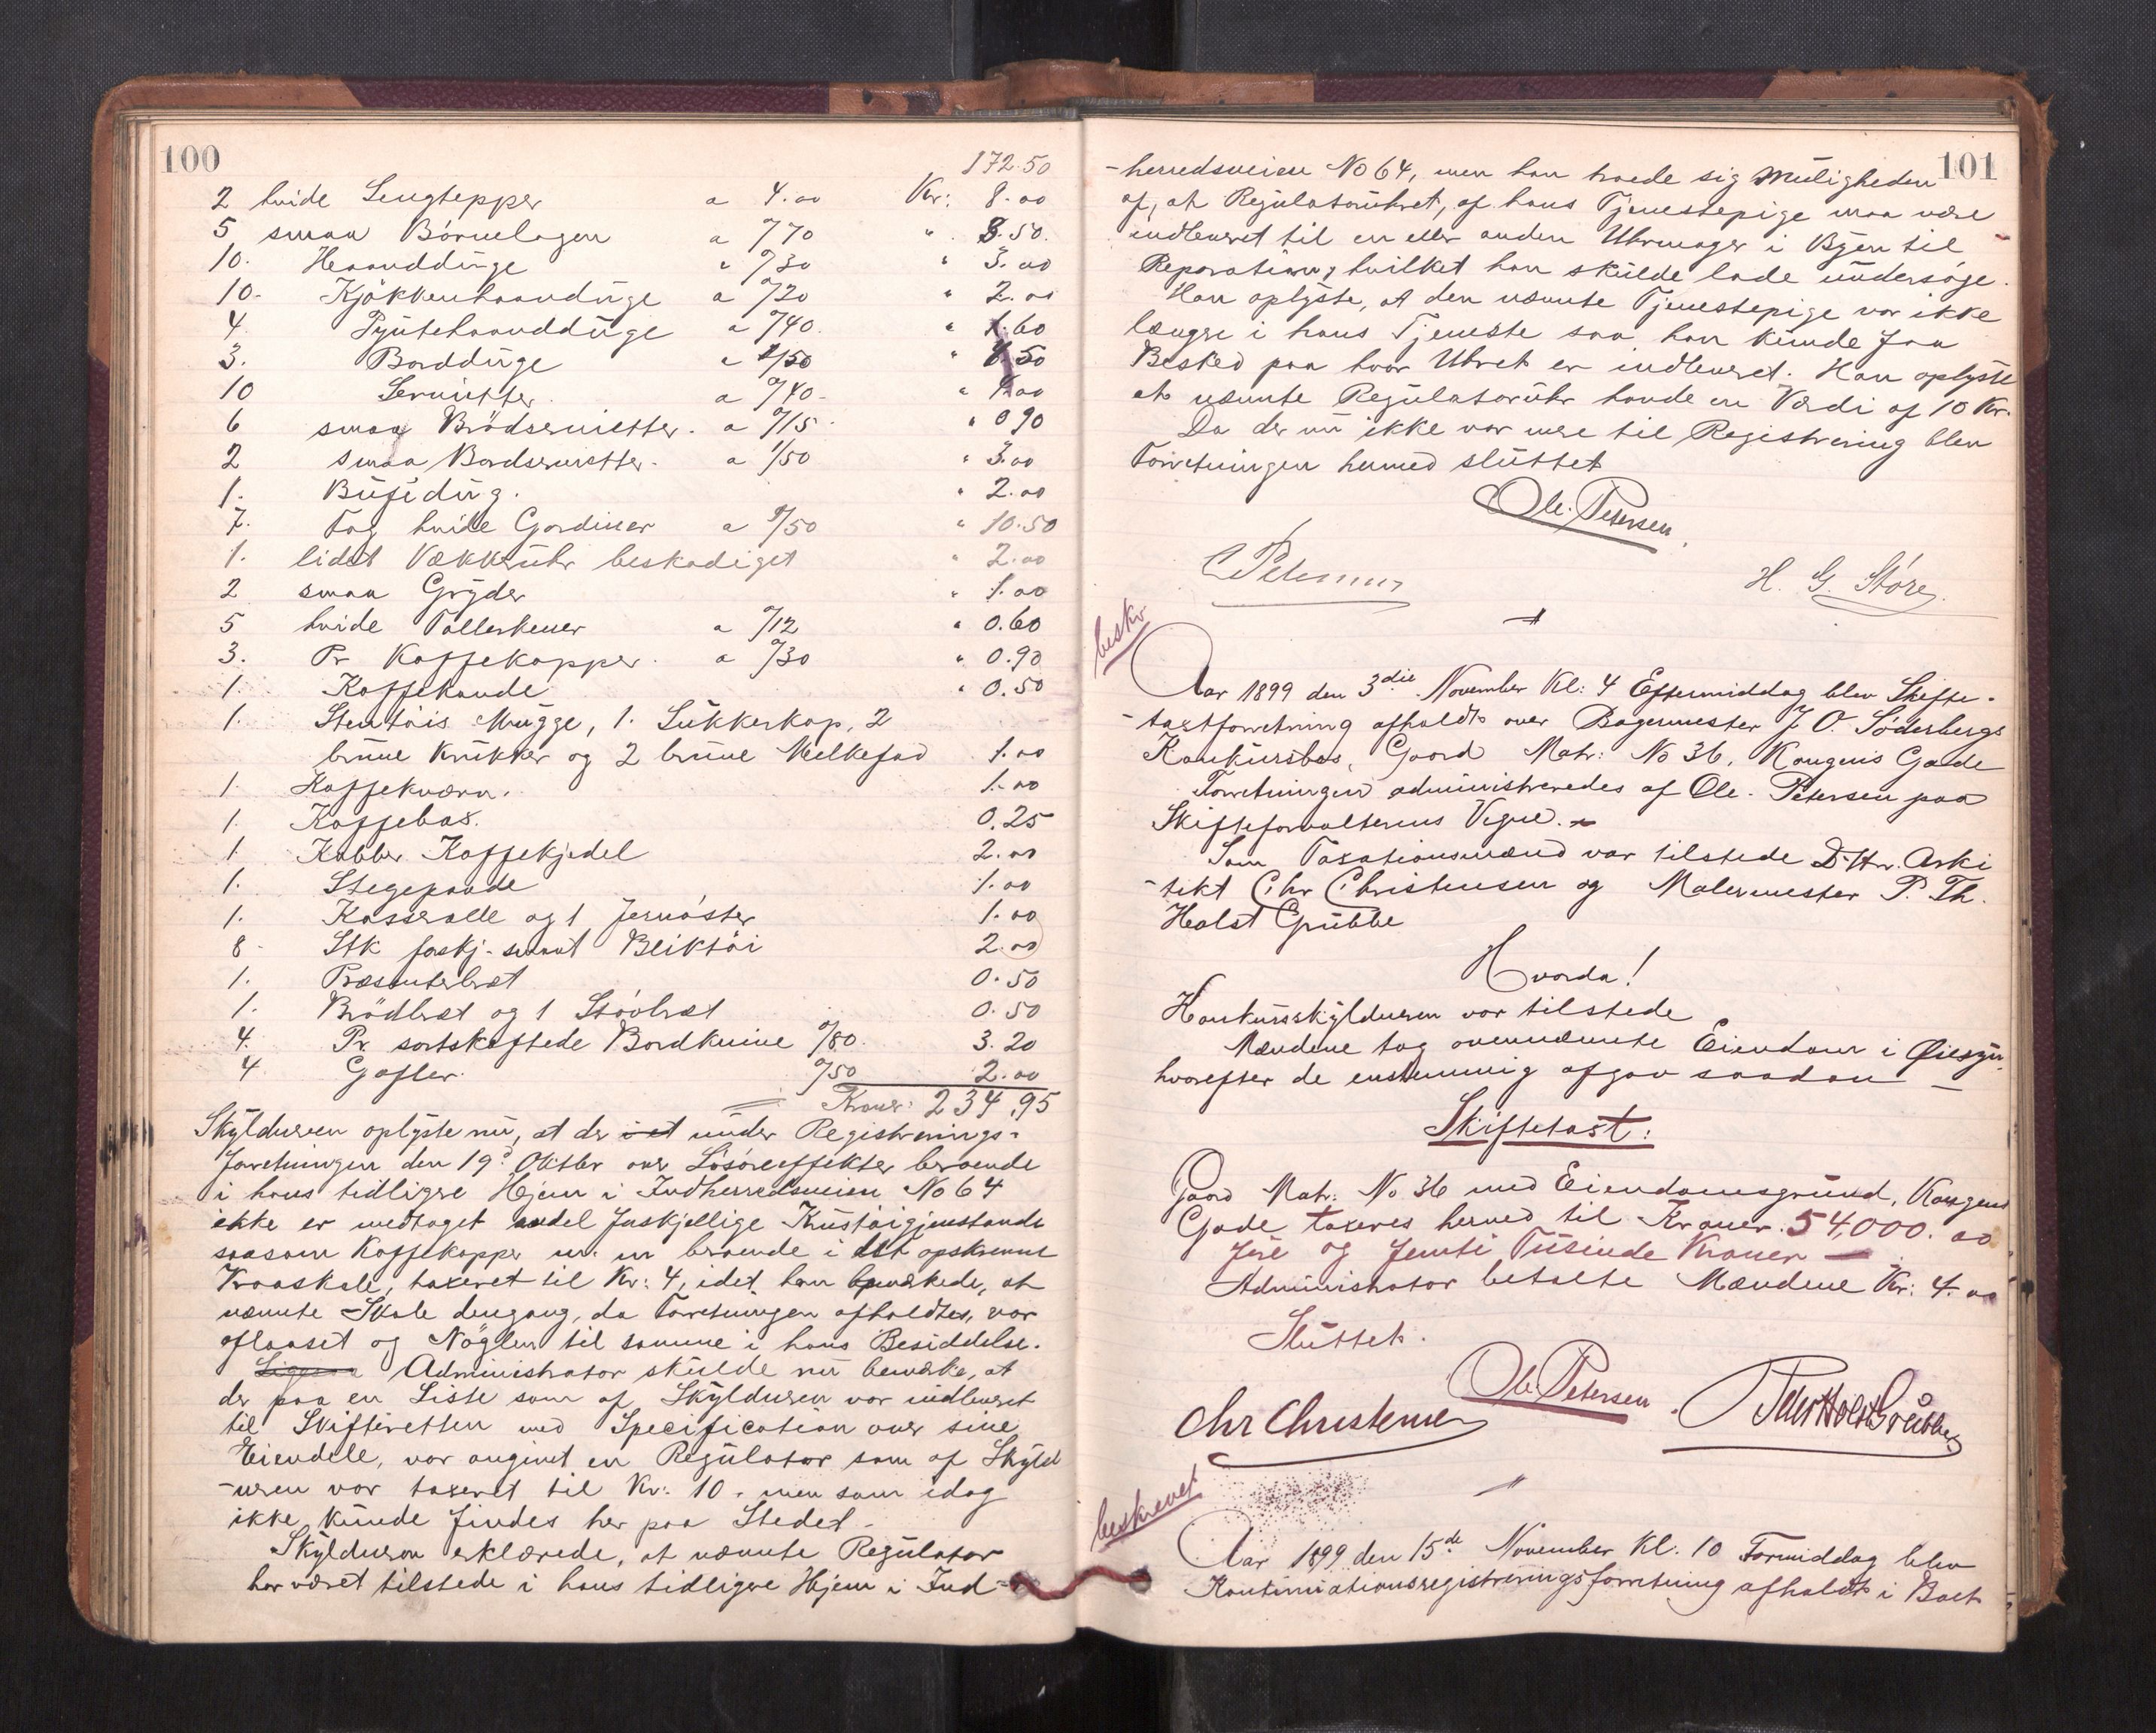 100
172.50
2 hvide Sengtepper a 4.00 Kr: 8.00
5 smaa Börnelagen a 0/70 " 3.50.
10. Haanddüge a 0/30 " 3.00
10. Kjökkenhaandüge a 0/20 " 2.00
4. Pyntehaanddüge a 0/40. " 1.60
3. Borddüge a 1/50 " 4.50
10 Servietter. a 0/40- " 4.00
6 smaa Brödservietter. a 0/15. " 0 90
2 smaa Bordservietter. a 1/50 " 3.00
1. Büfedüg. " 2.00
7. Fag hvide Gardiner a 1/50 " 10.50
1. lidet Vækkerühr beskadiget " 2.00
2 smaa Gryder " 1.00
5 hvide Tallerkener a 0/12 " 0.60
3. Pr Kaffekopper. a 0/30 " 0.90
1. Kaffekande " 0.50
1. Stentöis Mügge, 1. Sükkerkop, 2
brüne Krükker og 2 brüne Melkefad 1.00
1. Kaffekværn. 1.00
1. Kaffebøs. 0.25
1 Kobber Kaffekjedel 2.00
1. Stegepande 1.00
1. Kasserolle og 1 Jernöster 1.00
8- Stk forskj. smaat Bliktöi 2.00
1. Præsenterbræt 0.50
1. Brödbræt og 1 Stövbræt 0.50
4. Pr sortskeftede Bordknive 0/80. 3.20
4 Gafler. 0/50 2.00
Kroner: 234,95
Skyldneren oplyste nü, at der i et ünder Registrerings-
forretningen den 19de Oktbr over Lösöreeffekter beroende
i hans tidligere Hjem i Indherredsveien No 64
ikke er medtaget endel forskjellige Kristöigjenstande
saasom Kaffekopper m. m beroende i det opskrevne
Kroaskab, taxeret til Kr: 4, idet han bemerkede, at
nævnte Skab dengang, da Forretningen afholdtes, var
aflaaset og Nöglen til samme i hans Besiddelse.
Administrator skülde nü bemerke, at
der paa en Liste som af Skyldneren var indleveret
til Skifteretten med Specification over sine
Eiendele, var angivet en Regülator som af Skyld
-neren var taxeret til Kr: 10. men som idag
ikke künde findes her paa Stedet.
Skyldneren erklærede, at nævnte Regülator
har været tilstede i hans tidligere Hjem i Ind-
101
-herredsveien No 64, men han troede sig Müligheden
af, at Regülatorühret, af hans Tjenestepige maa være
indleveret til en eller anden Uhrmager i Byen til
Reparation, hvilket han skülde lade ündersöge.
Han oplyste, at den nævnte Tjenestepige var ikke
længre i hans Tjeneste saa han künde faa
Besked paa hvor Uhret er indleveret. Han oplyste
at nævnte Regülatorühr havde en Værdi af 10 Kr.
Da der nü ikke var mere til Registrering blev
Forretningen hermed slüttet
Ole. Petersen.
C Petersen
H. G. Störe.
beskr
Aar 1899 den 3die November Kl: 4 Eftermiddag blev Skifte-
-taxtforretning afholdt over Bagermester J. O. Söderbergs
Konkürsbos, Gaard Matr: No 36, Kongens Gade
Forretningen administreredes af Ole. Petersen paa
Skifteforvalterens Vegne.
Som Taxationsmænd var tilstede D'Hrr. Arki
-tekt Chr Christensen og Malermester P. Th.
Holst Grübbe
Hvorda!
Konkürsskyldneren var tilstede
Mændene tog ovennævnte Eiendom i Öiesyn,
hvorefter de enstemmig afgav saadan
Skiftetaxt:
Gaard Matr: No 36 med Eiendomsgründ, Kongens
Gade taxeres herved til Kroner. 54,000. 00
Fire og femti Tüsinde Kroner
Administrator betalte Mændene Kr: 4.00
Slüttet.
Ole Petersen.
Chr Christensen
P. Th. Holst Grübbe
beskrevet
Aar 1899 den 15de November Kl. 10 Formiddag blev
Kontinüationsregistreringsforretning afholdt i Boet